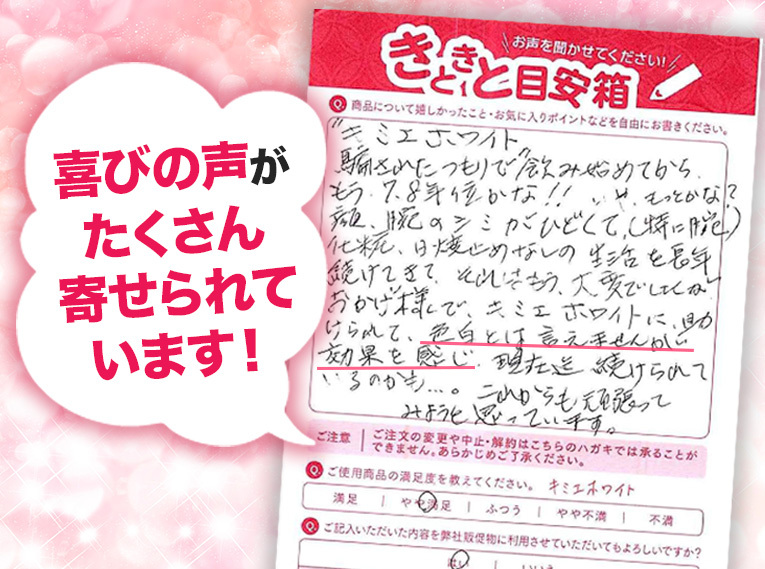 喜びの声が
たくさん
寄せられて
います!
お声を聞かせてください!
きときと目安箱
Q. 商品について嬉しかったこと・お気に入りポイントなどを自由にお書きください。
"キミエホワイト"
騙されたつもりで飲み始めてから、
もう7.8年位かな!! いや、もっとかな?
顔、腕のシミがひどくて、(特に腕)
化粧、日焼止めなしの生活を長年
続けてきて、それはもう、大変でしたが
おかげ様で、キミエホワイトに、助
けられて、色白とは言えませんが
効果を感じ、現在迄続けられて
いるのかも…。これからも頑張って
みようと思っています。
ご注意 ご注文の変更や中止・解約はこちらのハガキでは承ることが
できません。あらかじめご了承ください。
Q. ご使用商品の満足度を教えてください。 キミエホワイト
満足 | やや満足 | ふつう | やや不満 | 不満
Q. ご記入いただいた内容を弊社販促物に利用させていただいてもよろしいですか?
はい いいえ